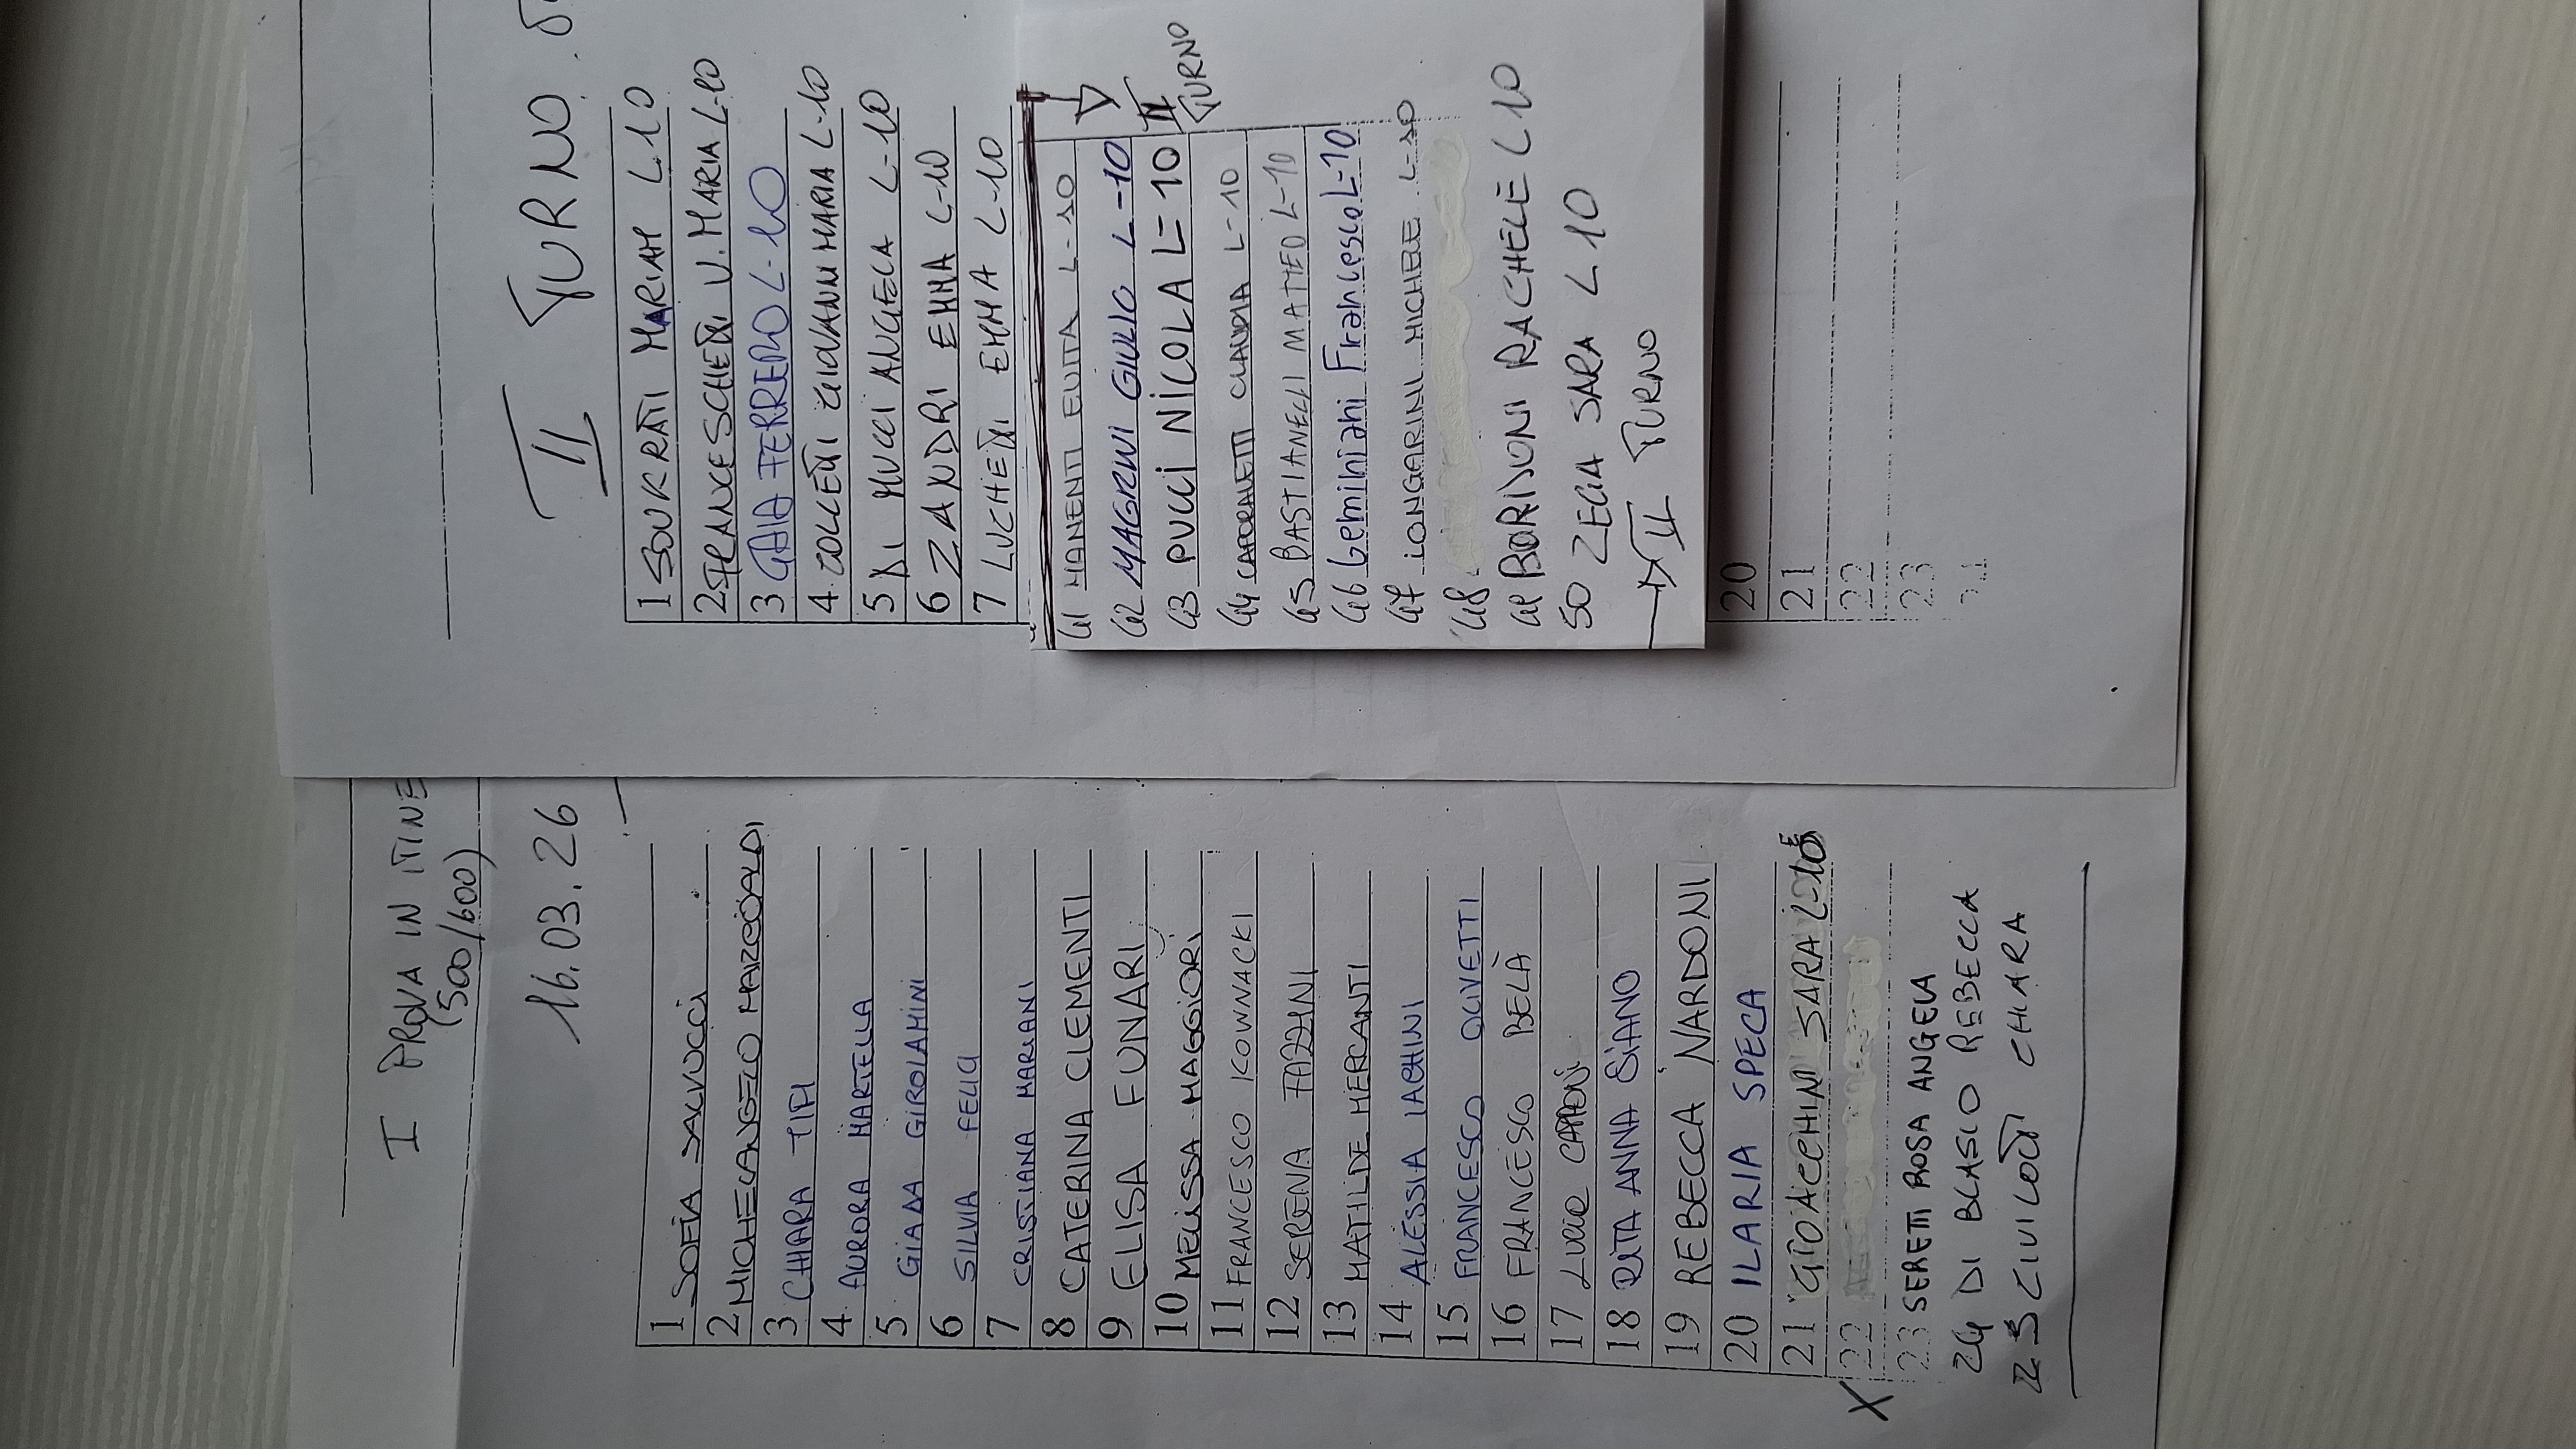 I PROVA IN ITINE
(500/600)
16.03.26
1 SOFIA SALVUCCI
2 MICHELANGELO MARZOALDI
3 CHIARA TIFI
4. AURORA MARTELLA
5. GIADA GIROLAMINI
6 SILVIA FELICI
7 CRISTIANA MARIANI
8 CATERINA CLEMENTI
9 ELISA FUNARI
10 MELISSA MAGGIORI
11 FRANCESCO KOWNACKI
12 SERENA FAZZINI
13 MATILDE MERCANTI
14 ALESSIA IACHINI
15 FRANCESCO OLIVETTI
16 FRANCESCO BELÀ
17 LUCIO CAPPONI
18 RITA ANNA SIANO
19 REBECCA NARDONI
20 ILARIA SPECA
21 GIOACCHINI SARA L-10
X 22
23 SERETTI ROSA ANGELA
24 DI BLASIO REBECCA
25 CIVILOTTI CHIARA
II TURNO
1 SOUKRATI MARIAM L10
2 FRANCESCHETTI V. MARIA L-10
3 GAIA FERRERO L-10
4. COLLETTI GIOVANNI MARIA L-10
5 DI MUCCI ANGELA L-10
6 ZANDRI EMMA L-10
7 LUCHETTI EMMA L-10
41 MANENTI EVITA L-10
42 MAGRINI GIULIO L-10
43 PUCCI NICOLA L=10
II TURNO
44 CAPORALETTI CLAUDIA L-10
45 BASTIANELLI MATTEO L-10
46 Geminiani Francesco L=10
47 LONGARINI MICHELE L-10
48
49 BORISONI RACHELE L10
50 ZEGIA SARA L10
II TURNO
20
21
22
23